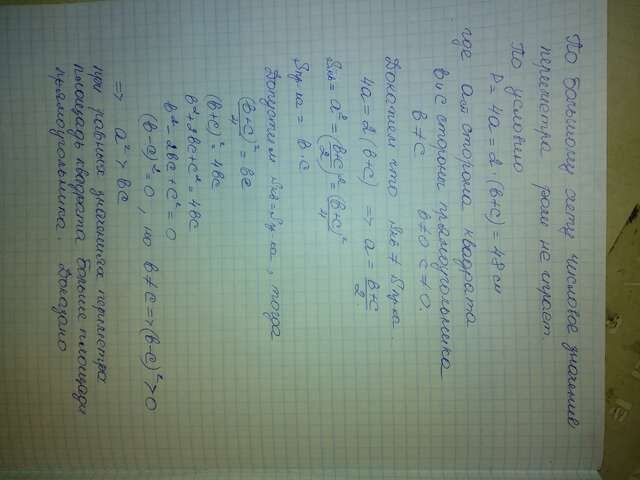 По большому счету числовое значение
периметра роли не играет.
По условию
P = 4a = 2·(b+c) = 48 см
где a – сторона квадрата
b и c стороны прямоугольника
b ≠ c b≠0 c≠0.
Докажем что Sкв ≠ Sпр-ка.
4a = 2(b+c) => a = (b+c)/2
Sкв = a² = ((b+c)/2)² = (b+c)²/4
Sпр-ка = b·c
Допустим Sкв = Sпр-ка, тогда
(b+c)²/4 = bc
(b+c)² = 4bc
b²+2bc+c² = 4bc
b²-2bc+c² = 0
(b-c)² = 0, но b≠c => (b-c)² > 0
=> a² > bc
при равных значениях периметра
площадь квадрата больше площади
прямоугольника. Доказано